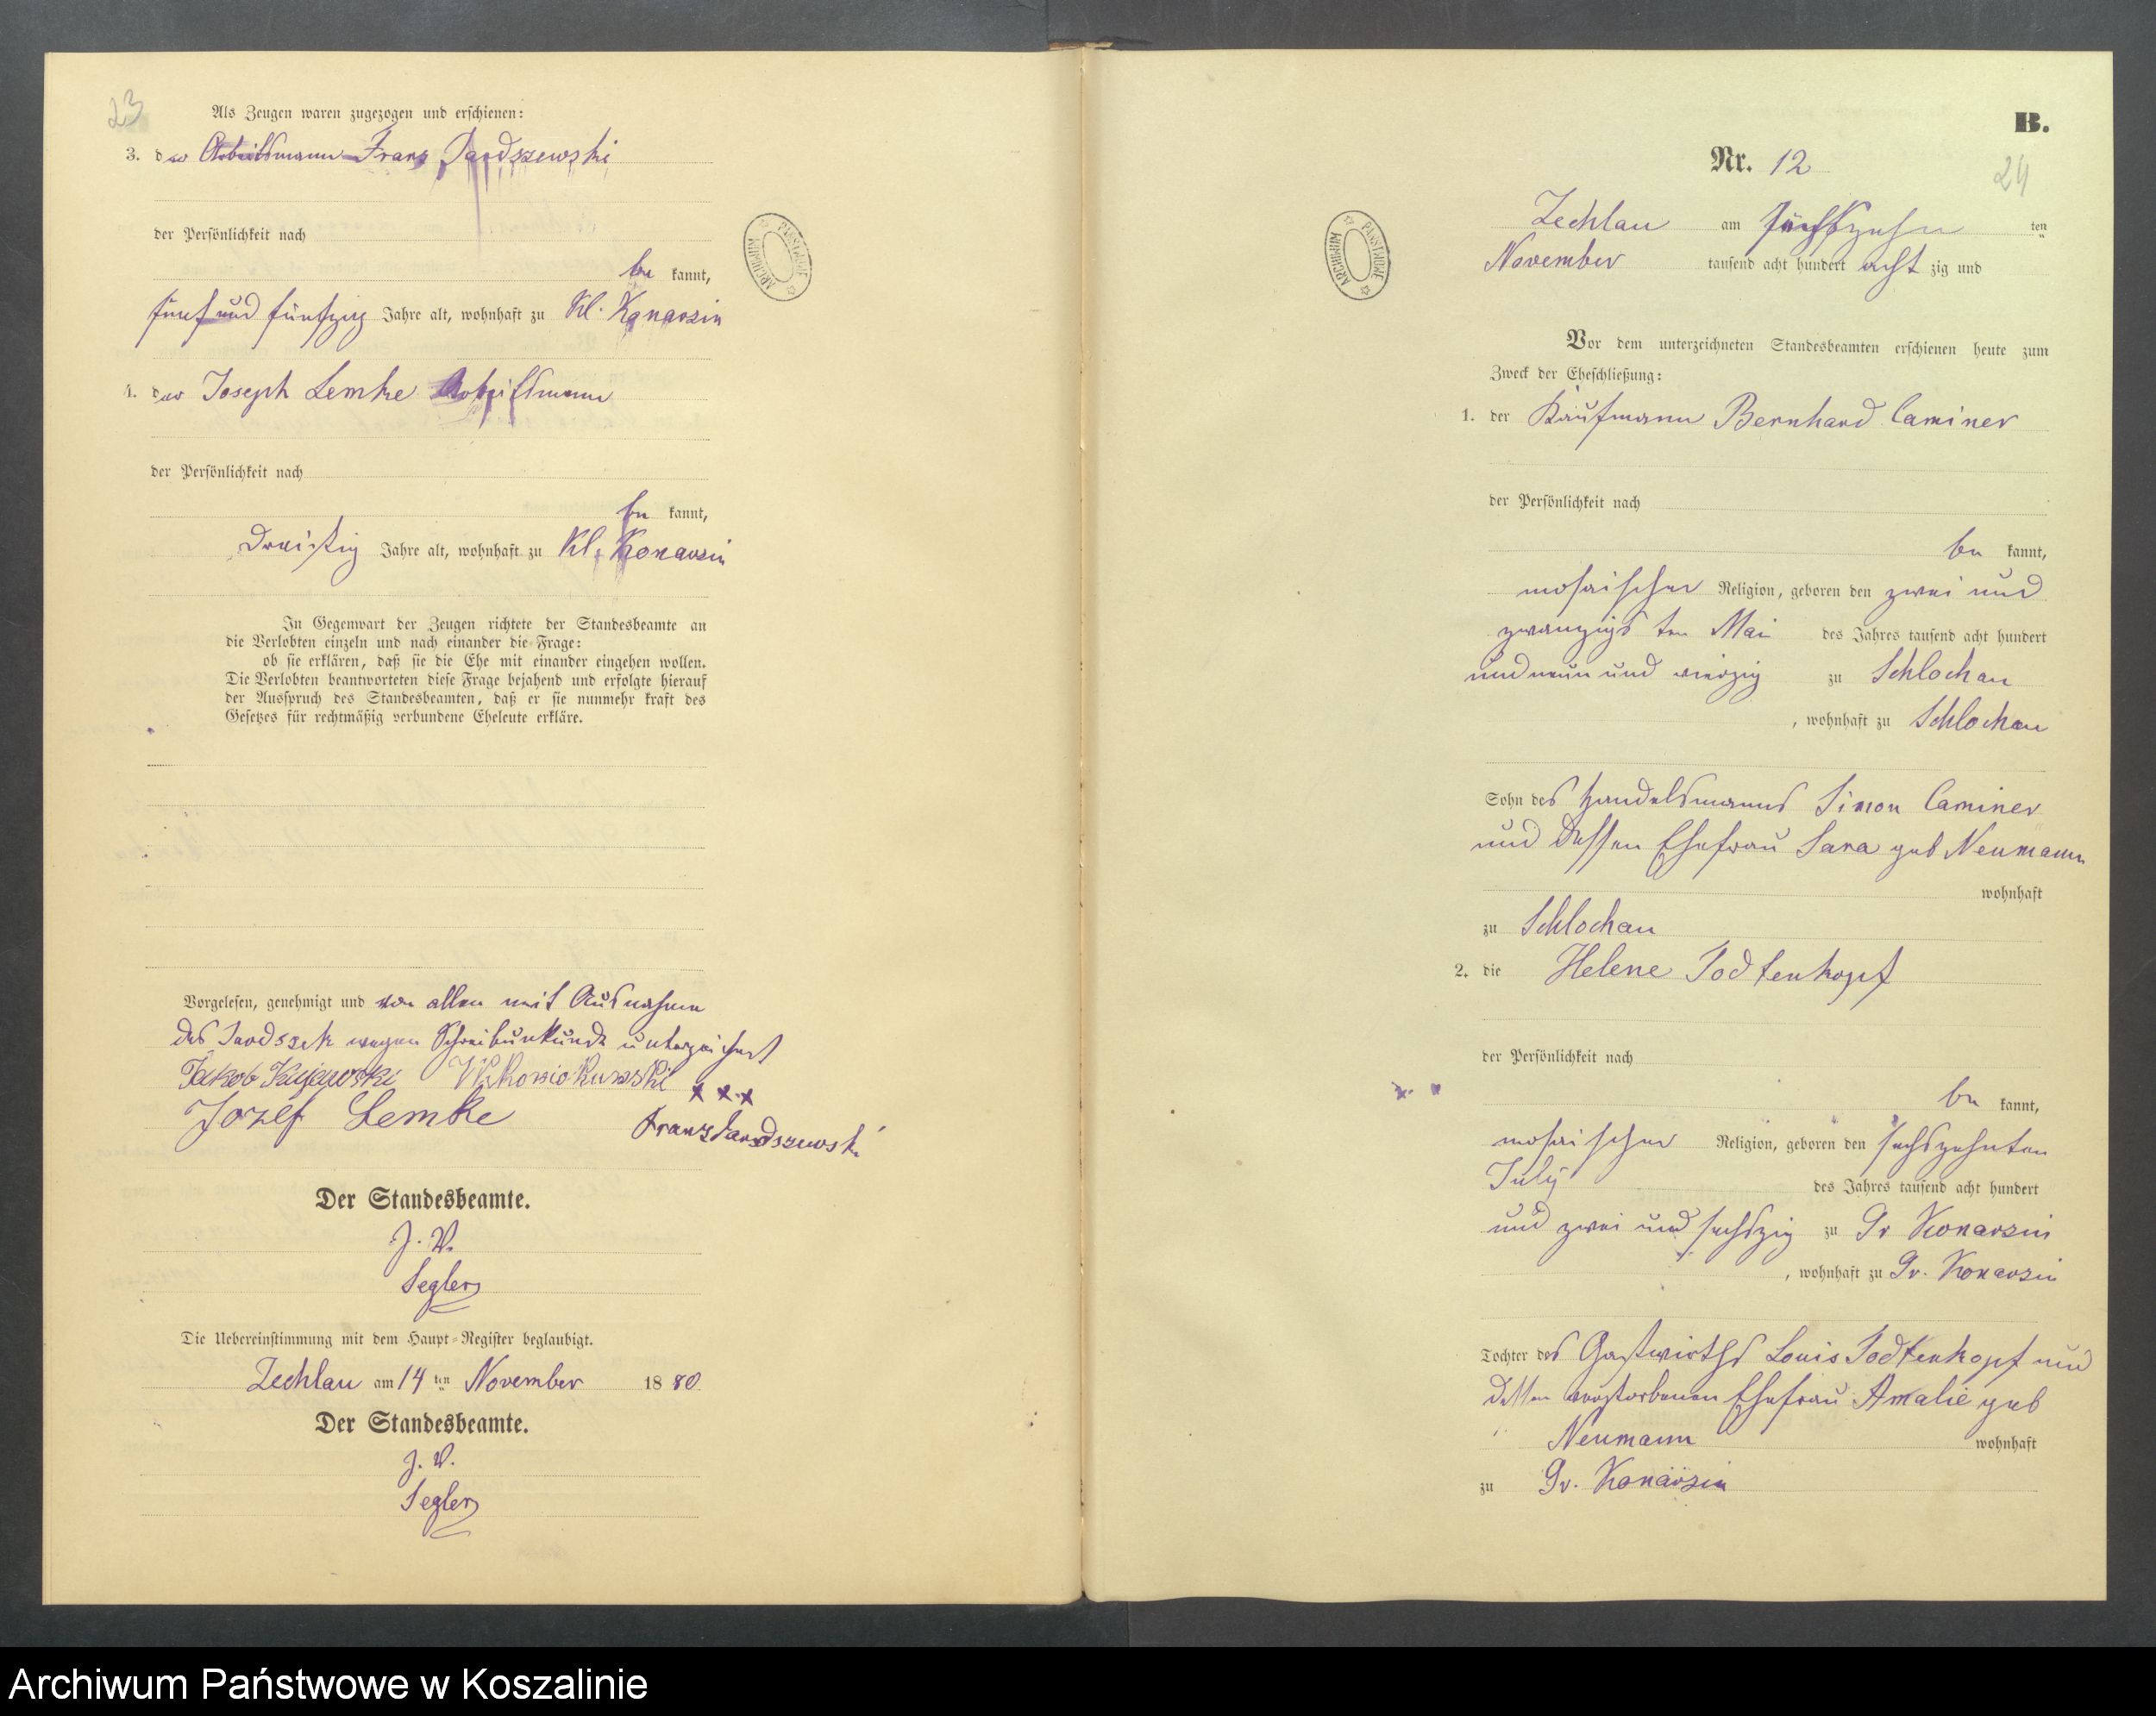 23
Als Zeugen waren zugezogen und erschienen:
3. der Arbeitsmann Franz Jardszewski
der Persönlichkeit nach
be kannt,
fünf und fünfzig Jahre alt, wohnhaft zu Kl. Konarzin
4. der Joseph Lemke Arbeitsmann
der Persönlichkeit nach
be kannt,
dreißig Jahre alt, wohnhaft zu Kl. Konarzin
In Gegenwart der Zeugen richtete der Standesbeamte an
die Verlobten einzeln und nach einander die Frage:
ob sie erklären, daß sie die Ehe mit einander eingehen wollen.
Die Verlobten beantworteten diese Frage bejahend und erfolgte hierauf
der Ausspruch des Standesbeamten, daß er sie nunmehr kraft des
Gesetzes für rechtmäßig verbundene Eheleute erkläre.
Vorgelesen, genehmigt und von allen mit Ausnahme
des wegen Schreibunkunde unterzeichnet
Jakob Kujawski
Jozef Lemke x x x
Franz Jardszewski
Der Standesbeamte.
J. V.
Segler
Die Uebereinstimmung mit dem Haupt-Register beglaubigt.
Zechlau am 14 ten November 18 80
Der Standesbeamte.
J. V.
Segler
ARCHIWUM PAŃSTWOWE
B.
Nr. 12
24
ARCHIWUM PAŃSTWOWE
Zechlau am fünfzehn ten
November tausend acht hundert acht zig und
Vor dem unterzeichneten Standesbeamten erschienen heute zum
Zweck der Eheschließung:
1. der Kaufmann Bernhard Caminer
der Persönlichkeit nach
be kannt,
mosaischer Religion, geboren den zwei und
zwanzigs ten Mai des Jahres tausend acht hundert
und neun und vierzig zu Schlochau
, wohnhaft zu Schlochau
Sohn des Handelsmanns Simon Caminer
und dessen Ehefrau Sara geb Neumann
wohnhaft
zu Schlochau
2. die Helene Todtenkopf
der Persönlichkeit nach
be kannt,
mosaischer Religion, geboren den sechszehnten
July des Jahres tausend acht hundert
und zwei und sechszig zu Gr Konarzin
, wohnhaft zu Gr. Konarzin
Tochter des Gastwirths Louis Todtenkopf und
dessen verstorbenen Ehefrau Amalie geb
Neumann wohnhaft
zu Gr. Konarzin
Archiwum Państwowe w Koszalinie